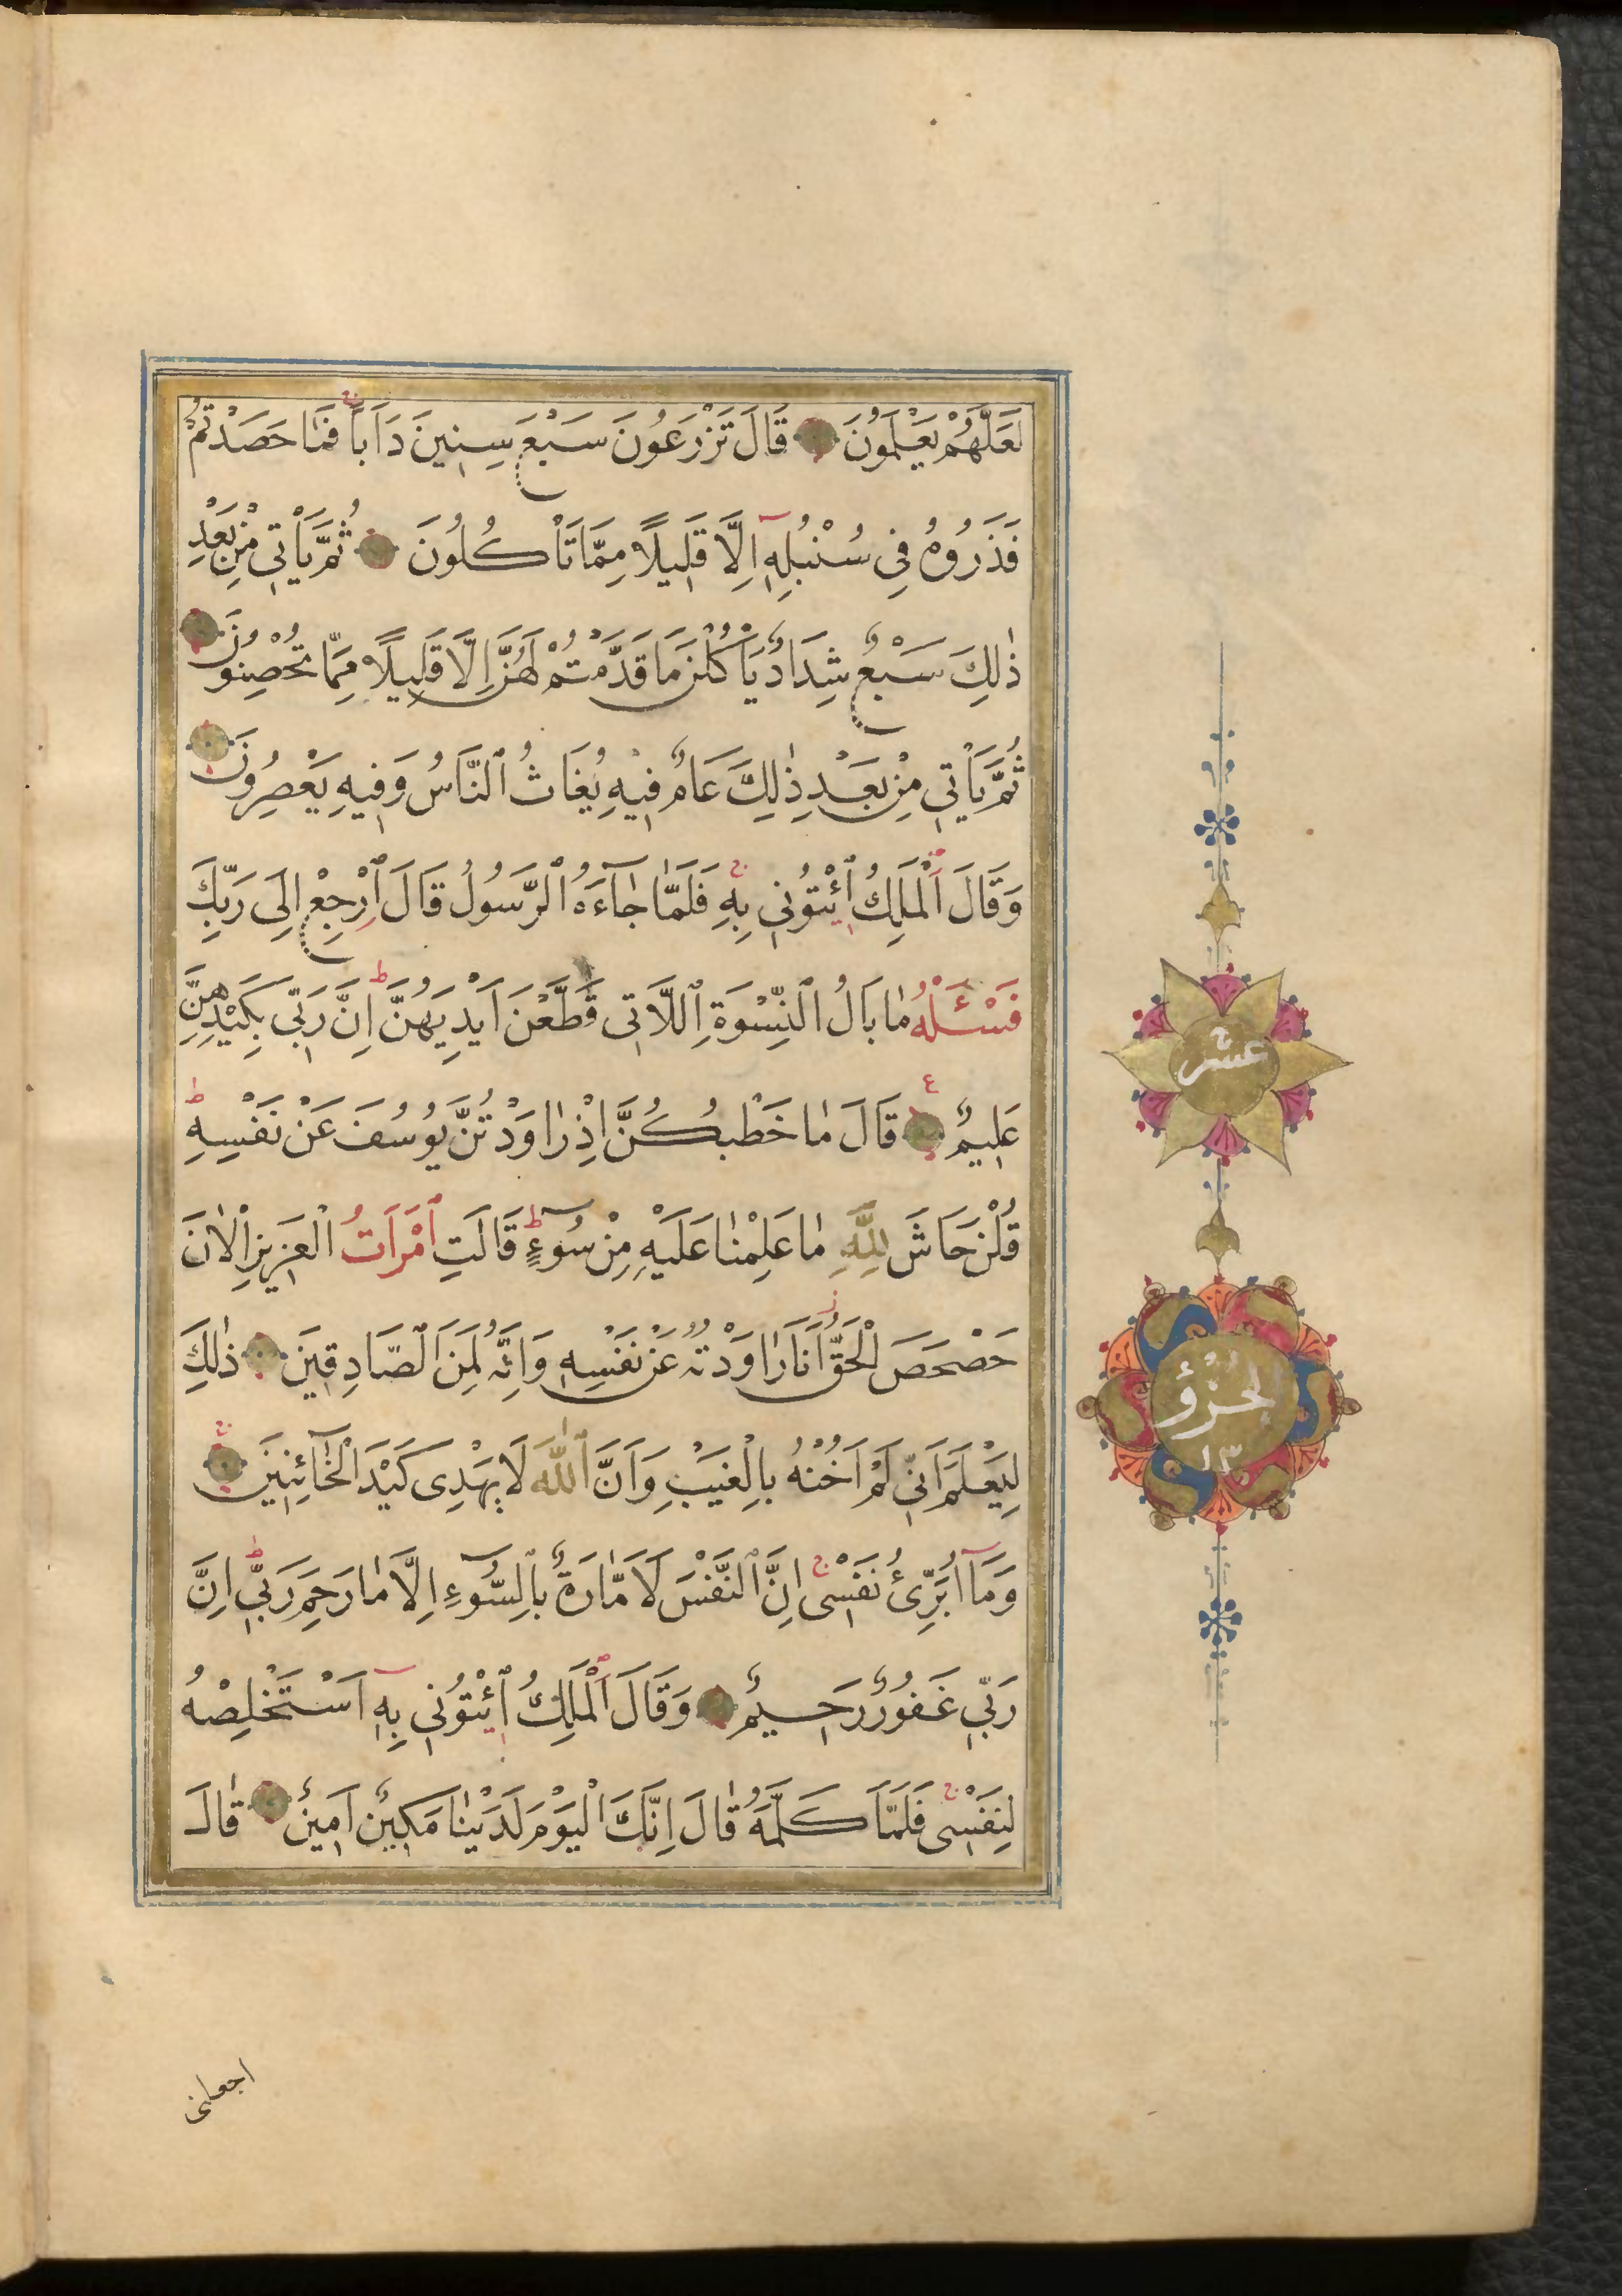 لَعَلَّهُمْ يَعْلَمُونَ قَالَ تَزْرَعُونَ سَبْعَ سِنِينَ دَاَبًا فَمَا حَصَدْتُمْ
فَذَرُوهُ فِى سُنْبُلِهِ اِلَّا قَلِيلًا مِمَّا تَاْكُلُونَ ثُمَّ يَاْتِى مِنْ بَعْدِ
ذٰلِكَ سَبْعٌ شِدَادٌ يَاْكُلْنَ مَا قَدَّمْتُمْ لَهُنَّ اِلَّا قَلِيلًا مِمَّا تُحْصِنُونَ
ثُمَّ يَاْتِى مِنْ بَعْدِ ذٰلِكَ عَامٌ فِيهِ يُغَاثُ ٱلنَّاسُ وَفِيهِ يَعْصِرُونَ
وَقَالَ ٱلْمَلِكُ ٱئْتُونِى بِهِ فَلَمَّا جَآءَهُ ٱلرَّسُولُ قَالَ ٱرْجِعْ اِلَى رَبِّكَ
فَسْـَٔلْهُ مَا بَالُ ٱلنِّسْوَةِ ٱللَّاتِى قَطَّعْنَ اَيْدِيَهُنَّ اِنَّ رَبِّى بِكَيْدِهِنَّ
عَلِيمٌ قَالَ مَا خَطْبُكُنَّ اِذْ رَاوَدْتُنَّ يُوسُفَ عَنْ نَفْسِهِ
قُلْنَ حَاشَ لِلّٰهِ مَا عَلِمْنَا عَلَيْهِ مِنْ سُوٓءٍ قَالَتِ ٱمْرَاَتُ الْعَزِيزِ الْاٰنَ
حَصْحَصَ الْحَقُّ اَنَا رَاوَدْتُهُ عَنْ نَفْسِهِ وَاِنَّهُ لَمِنَ ٱلصَّادِقِينَ ذٰلِكَ
لِيَعْلَمَ اَنِّى لَمْ اَخُنْهُ بِالْغَيْبِ وَاَنَّ ٱللّٰهَ لَا يَهْدِى كَيْدَ الْخَآئِنِينَ
وَمَآ اُبَرِّئُ نَفْسِى اِنَّ ٱلنَّفْسَ لَاَمَّارَةٌ بِٱلسُّوٓءِ اِلَّا مَا رَحِمَ رَبِّى اِنَّ
رَبِّى غَفُورٌ رَحِيمٌ وَقَالَ ٱلْمَلِكُ ٱئْتُونِى بِهِ اَسْتَخْلِصْهُ
لِنَفْسِى فَلَمَّا كَلَّمَهُ قَالَ اِنَّكَ الْيَوْمَ لَدَيْنَا مَكِينٌ اَمِينٌ قَالَ
عشر
الجُزْؤُ
١٣
اجعلنى